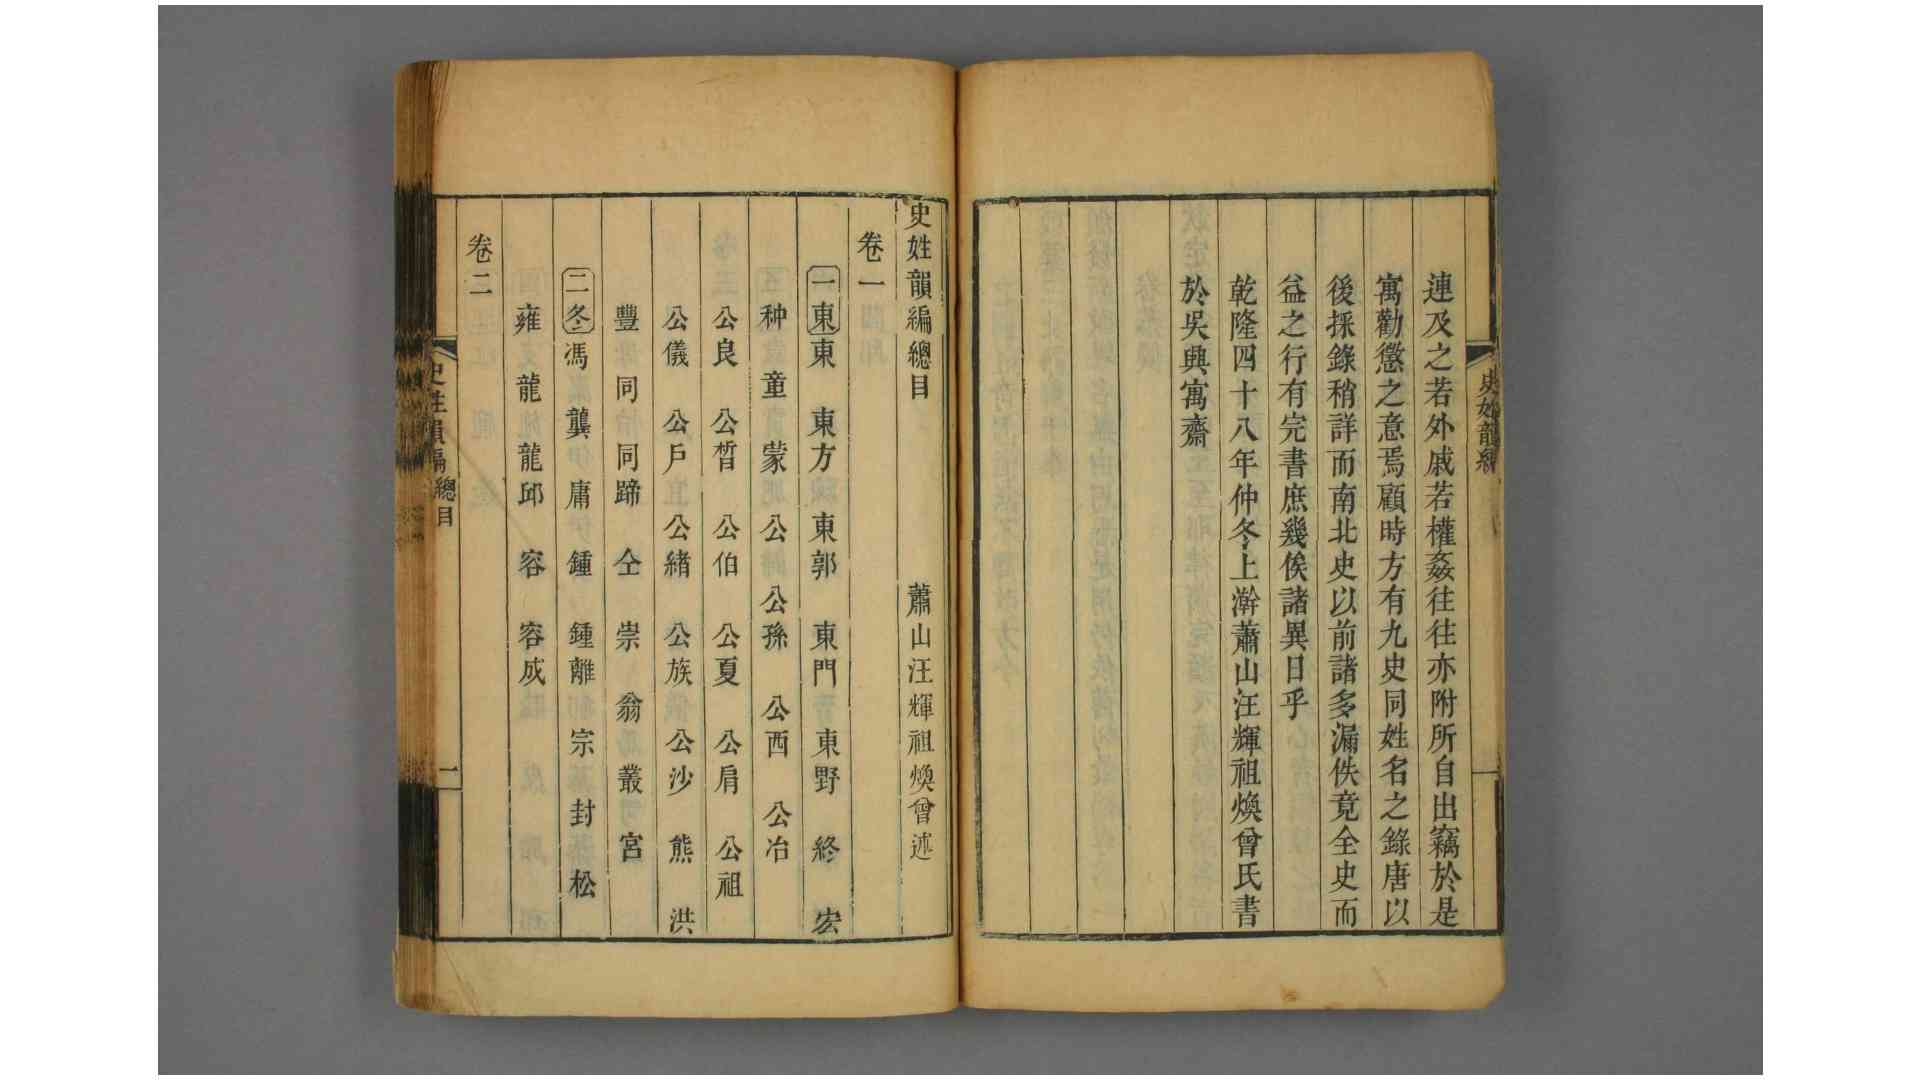 連及之若外戚若權姦往往亦附所自出竊於是
寓勸懲之意焉顧時方有九史同姓名之錄唐以
後採錄稍詳而南北史以前諸多漏佚竟全史而
益之行有完書庶幾俟諸異日乎
乾隆四十八年仲冬上澣蕭山汪輝祖煥曾氏書
於吳興寓齋
史姓韻編
史姓韻編總目 蕭山汪輝祖煥曾述
卷一
一東 東 東方 東郭 東門 東野 終 宏
种 童 蒙 公 公孫 公西 公冶
公良 公晳 公伯 公夏 公肩 公祖
公儀 公戶 公緒 公族 公沙 熊 洪
豐 同 同蹄 仝 崇 翁 叢 宮
二冬 馮 龔 庸 鍾 鍾離 宗 封 松
雍 龍 龍邱 容 容成
卷二
史姓韻編 總目 一